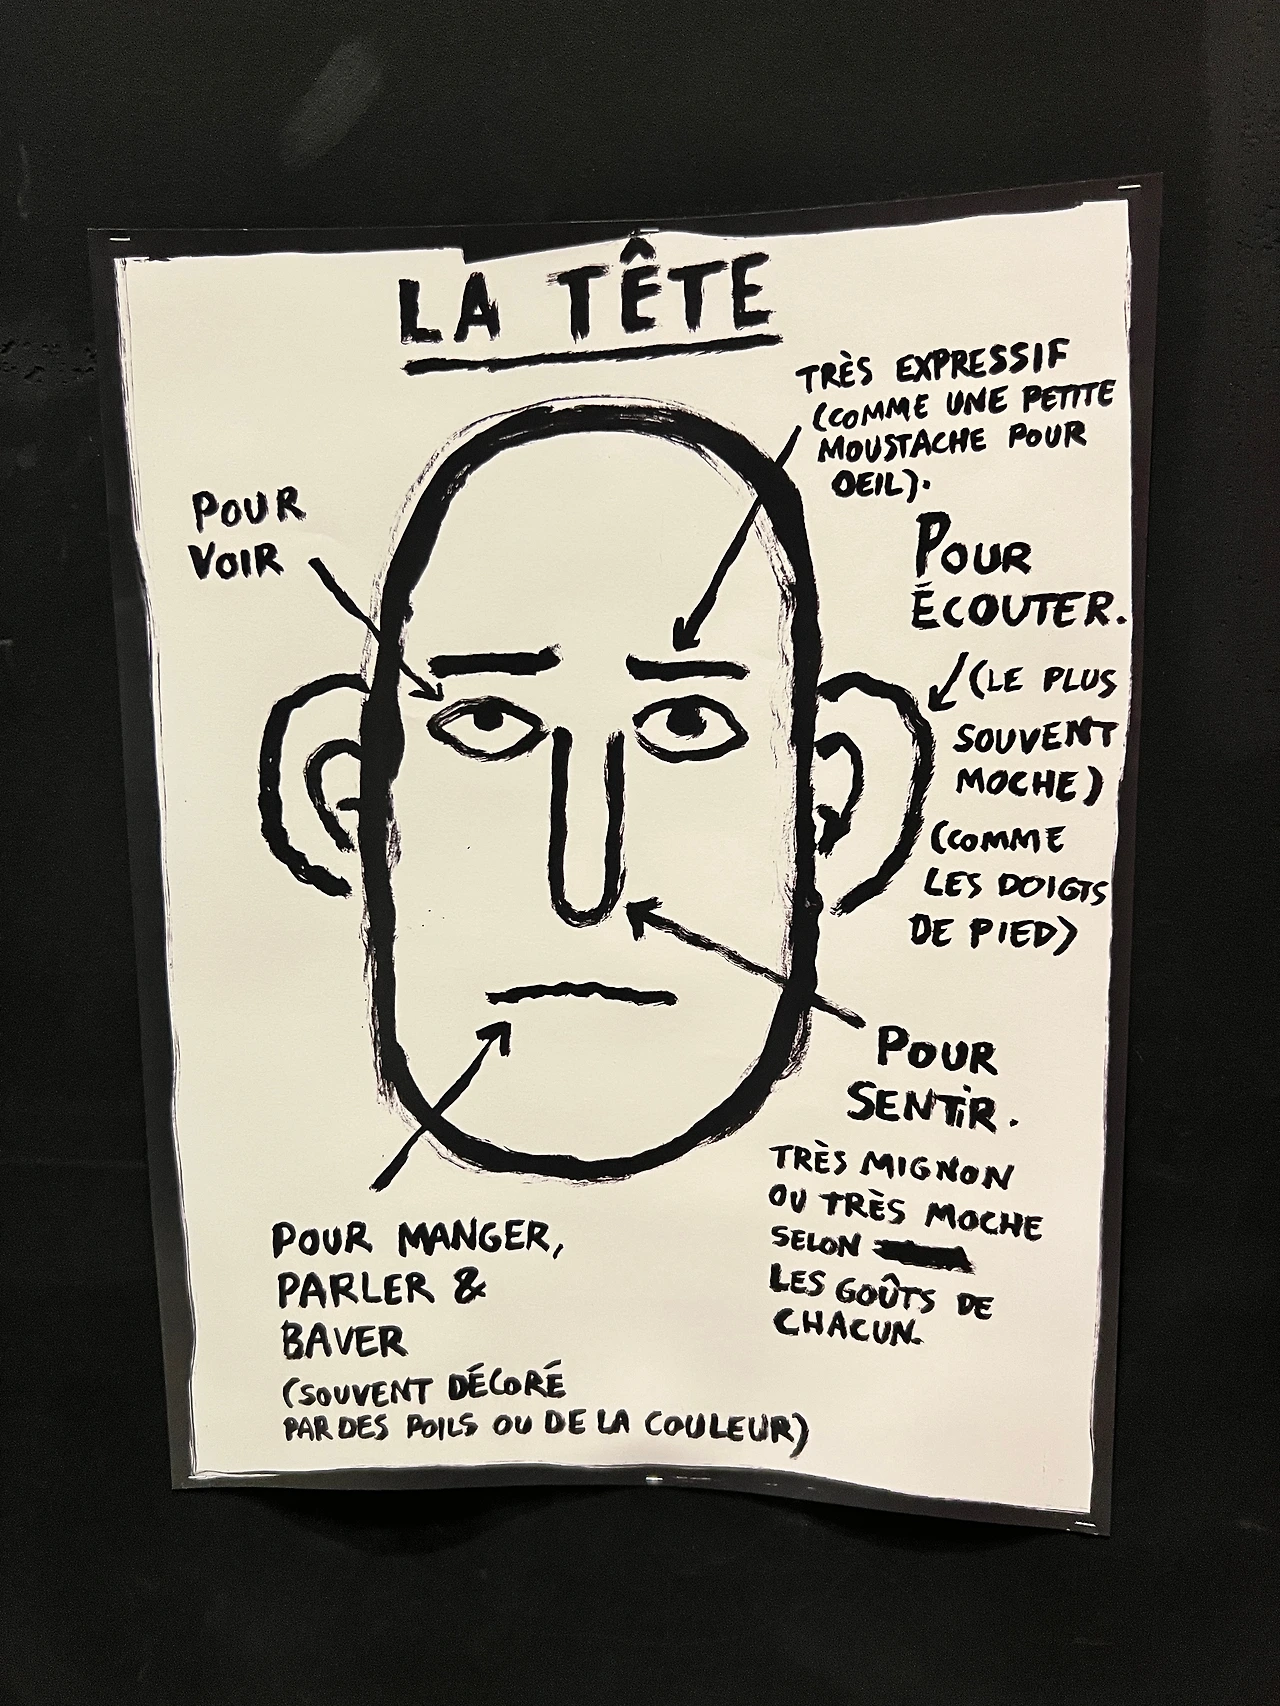 LA TÊTE
TRÈS EXPRESSIF
(COMME UNE PETITE
MOUSTACHE POUR
OEIL).
POUR
VOIR
POUR
ÉCOUTER.
(LE PLUS
SOUVENT
MOCHE)
(COMME
LES DOIGTS
DE PIED)
POUR
SENTIR.
TRÈS MIGNON
OU TRÈS MOCHE
SELON
LES GOÛTS DE
CHACUN.
POUR MANGER,
PARLER &
BAVER
(SOUVENT DÉCORÉ
PAR DES POILS OU DE LA COULEUR)